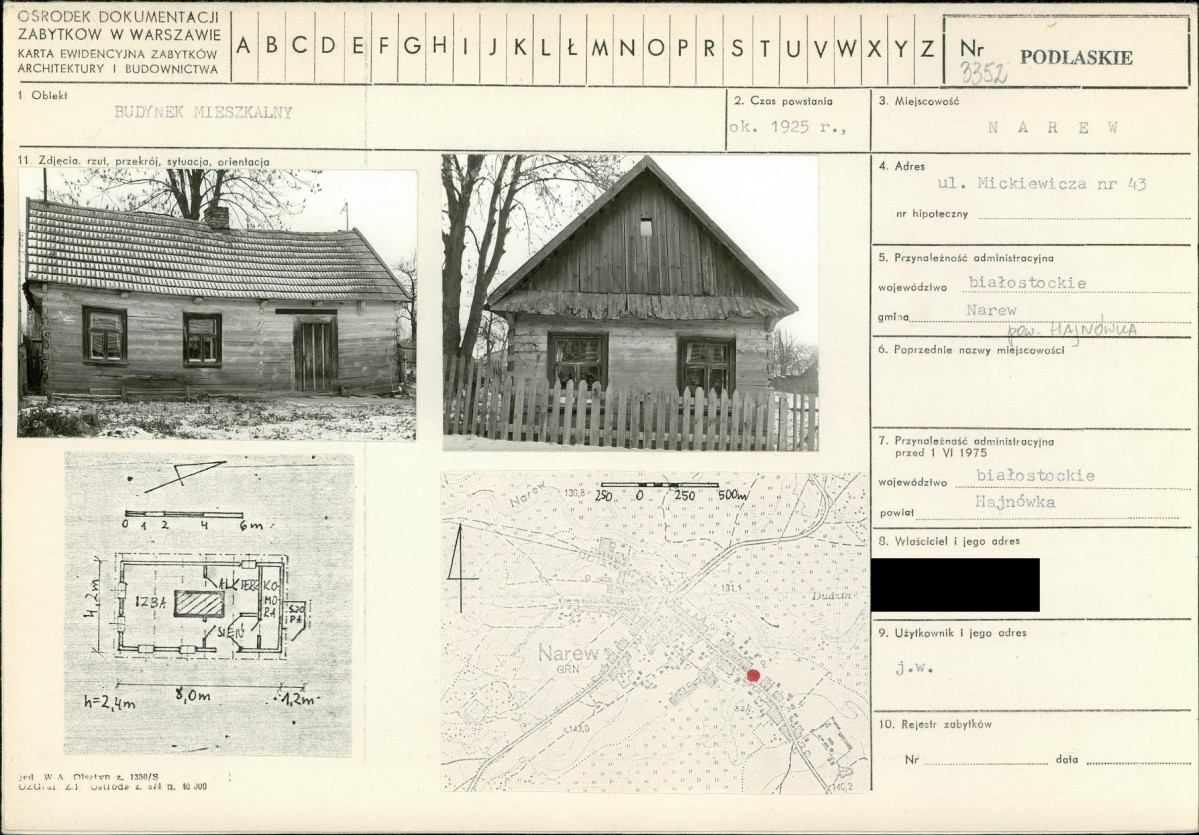 OŚRODEK DOKUMENTACJI
ZABYTKÓW W WARSZAWIE
KARTA EWIDENCYJNA ZABYTKÓW
ARCHITEKTURY I BUDOWNICTWA
A B C D E F G H I J K L Ł M N O P R S T U V W X Y Z
Nr
3352
PODLASKIE
1. Obiekt
BUDYNEK MIESZKALNY
2. Czas powstania
ok. 1925 r.,
3. Miejscowość
N A R E W
11. Zdjęcia, rzut, przekrój, sytuacja, orientacja
4. Adres
ul. Mickiewicza nr 43
nr hipoteczny
5. Przynależność administracyjna
województwo białostockie
gmina Narew
pow. HAJNÓWKA
6. Poprzednie nazwy miejscowości
7. Przynależność administracyjna
przed 1 VI 1975
województwo białostockie
powiat Hajnówka
8. Właściciel i jego adres
9. Użytkownik i jego adres
j.w.
10. Rejestr zabytków
Nr data
0 1 2 4 6m
4,2m
IZBA
ALKIERZ
KO-
MO-
RA
SIEŃ
SZO
PA
h=2,4m 8,0m 1,2m
250 0 250 500m
Narew
130,8
131,1
Dudzin
Narew
GRN
szk.
143,0
140,2
W.A. Olsztyn z. 1350/S